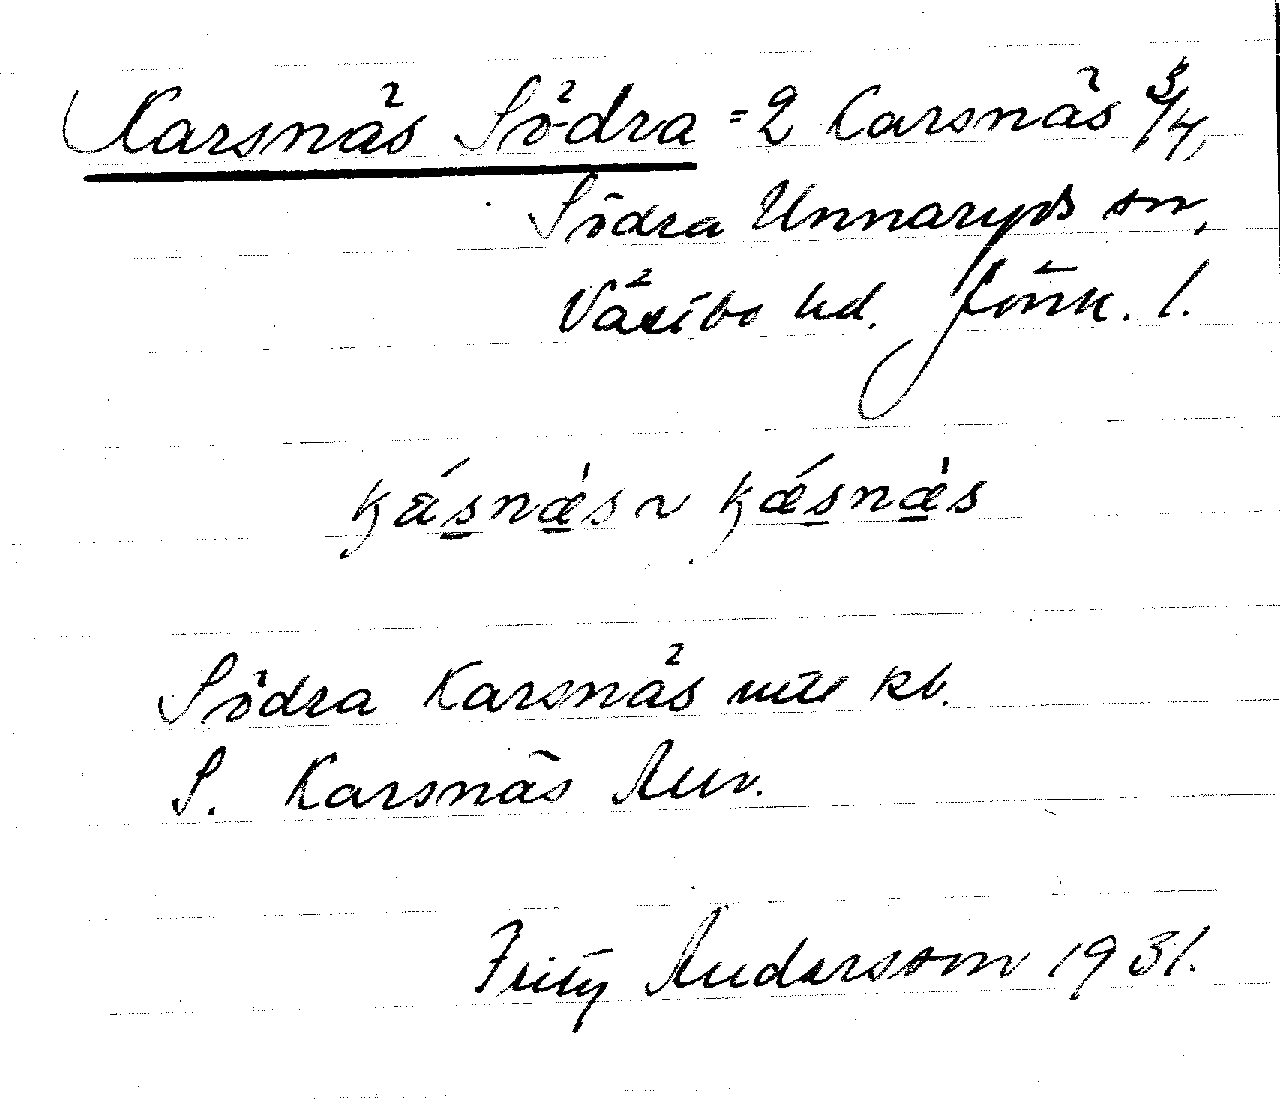 Karsnäs Södra = 2 Karsnäs 3/4,
Södra Unnaryds sn,
Västbo hd. Jönk. l.
kásnæ̀s ~ kǽsnæ̀s
Södra Karsnäs utt kb.
S. Karsnäs Auv.
Fritz Andersson 1931.